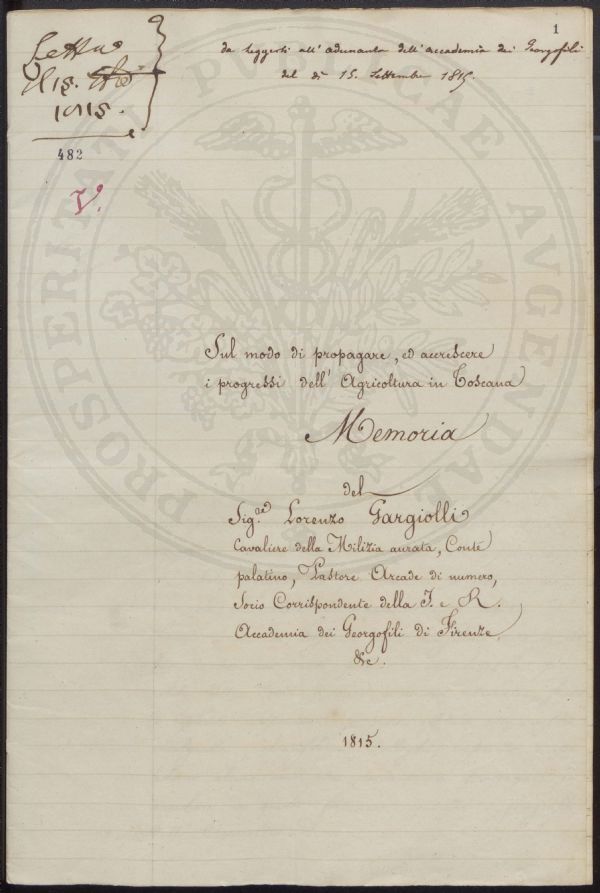 1
Letta
li 15. 7bre
1815.
da leggersi all'adunanza dell'accademia dei Georgofili
del dì 15. Settembre 1815.
482
V.
PROSPERITATI PUBLICAE AUGENDAE
Sul modo di propagare, ed accrescere
i progressi dell'Agricoltura in Toscana
Memoria
del
Sig.re Lorenzo Gargiolli
Cavaliere della Milizia aurata, Conte
palatino, Pastore Arcade di numero,
Socio Corrispondente della I. e R.
Accademia dei Georgofili di Firenze
&c.
1815.